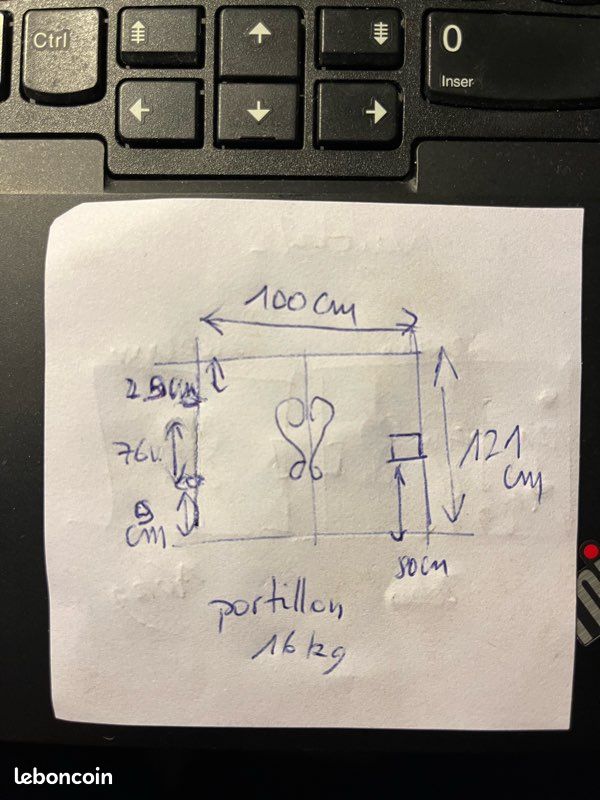 Ctrl
0
Inser
100 cm
76
121
cm
cm
80cm
portillon
16 kg
leboncoin